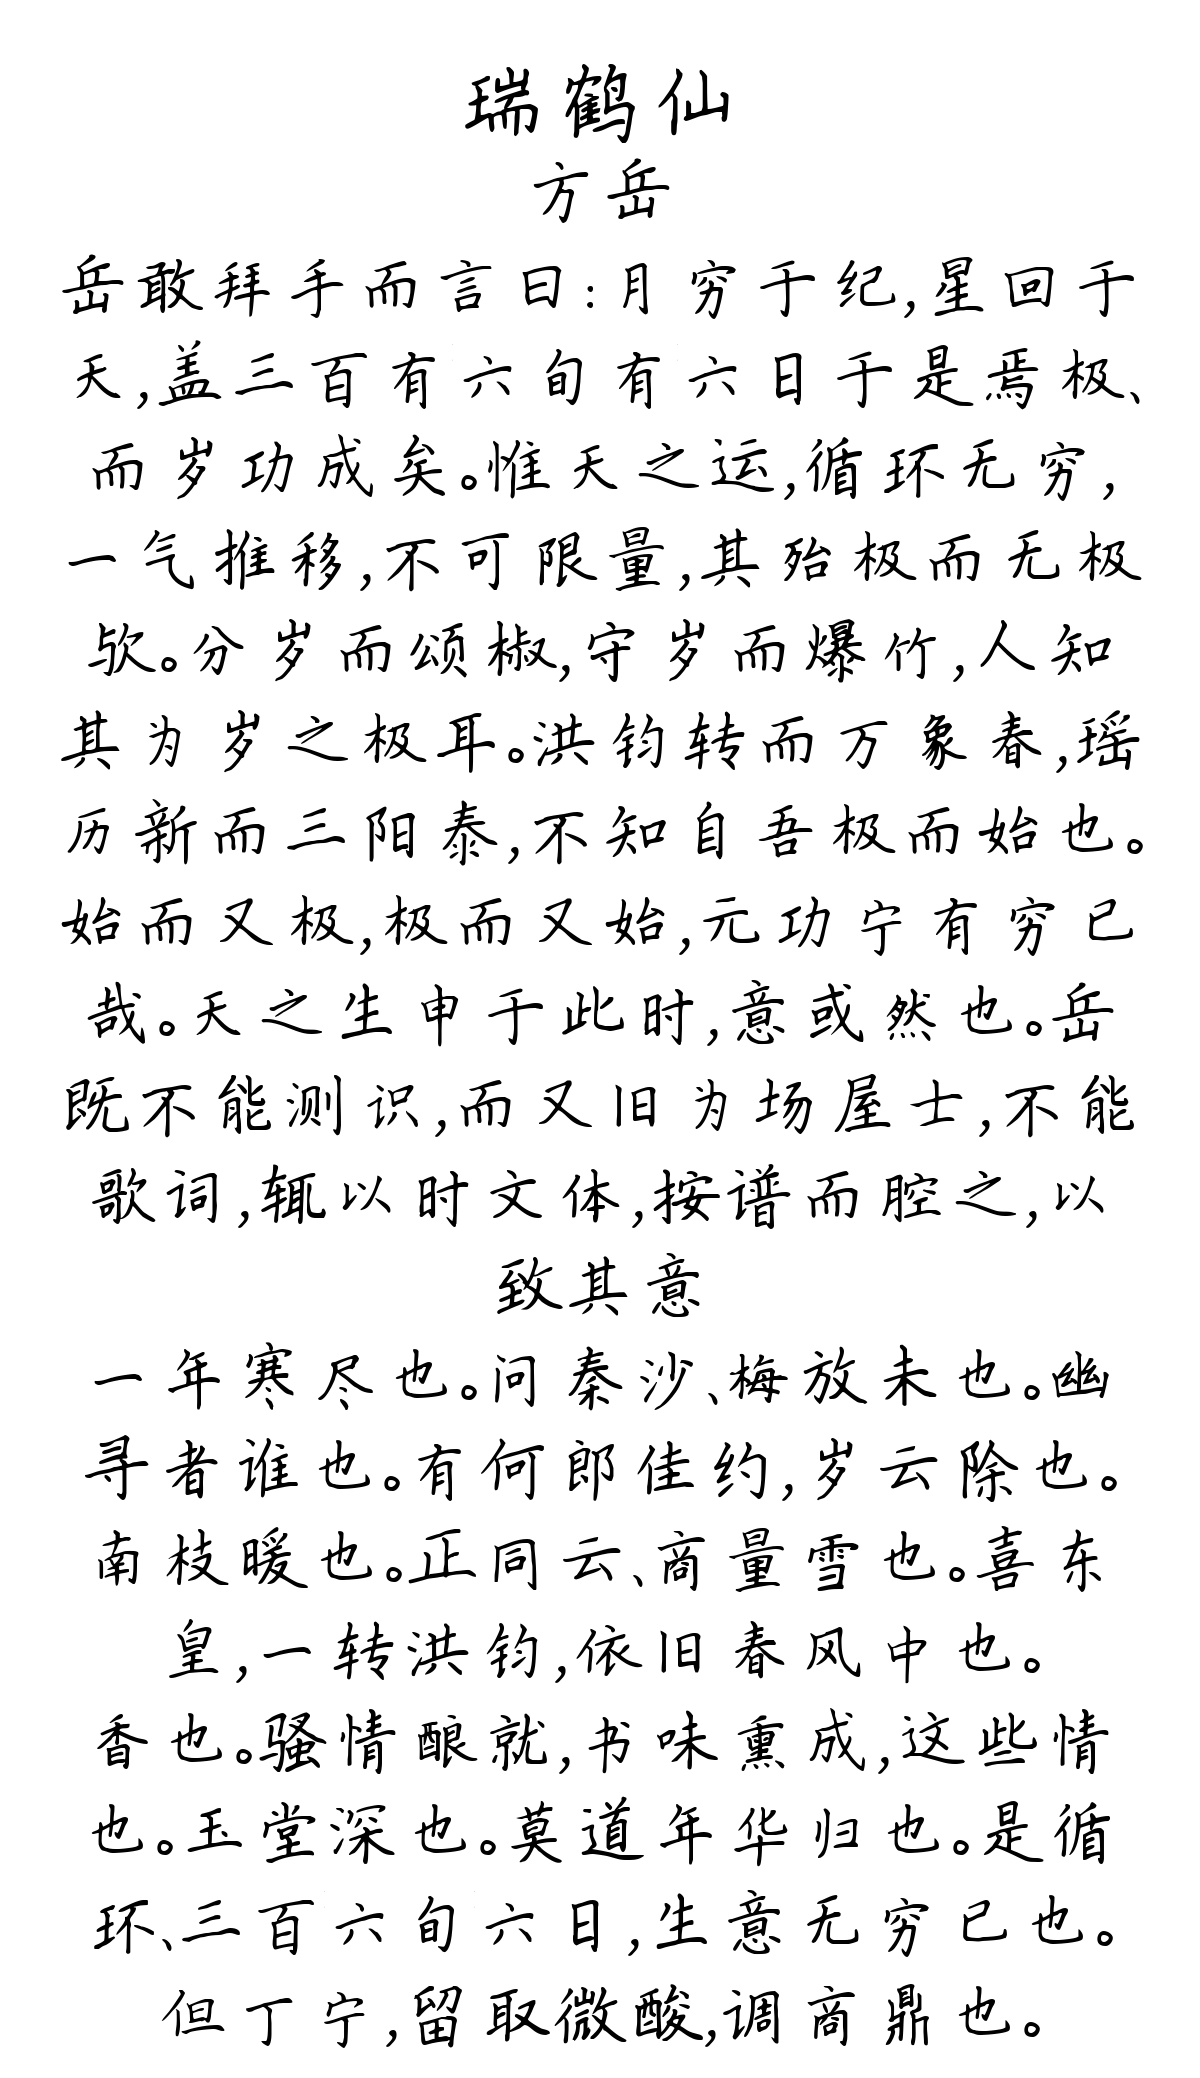 瑞鹤仙
方岳
岳敢拜手而言曰:月穷于纪,星回于
天,盖三百有六旬有六日于是焉极、
而岁功成矣。惟天之运,循环无穷,
一气推移,不可限量,其殆极而无极
欤。分岁而颂椒,守岁而爆竹,人知
其为岁之极耳。洪钧转而万象春,瑶
历新而三阳泰,不知自吾极而始也。
始而又极,极而又始,元功宁有穷已
哉。天之生申于此时,意或然也。岳
既不能测识,而又旧为场屋士,不能
歌词,辄以时文体,按谱而腔之,以
致其意
一年寒尽也。问秦沙、梅放未也。幽
寻者谁也。有何郎佳约,岁云除也。
南枝暖也。正同云、商量雪也。喜东
皇,一转洪钧,依旧春风中也。
香也。骚情酿就,书味熏成,这些情
也。玉堂深也。莫道年华归也。是循
环、三百六旬六日,生意无穷已也。
但丁宁,留取微酸,调商鼎也。